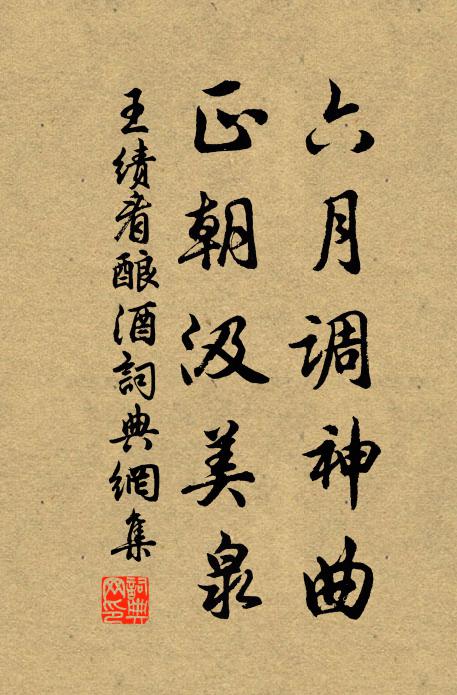 六月调神曲
正朝汲美泉
王绩看酿酒詞典網集
詞典網印